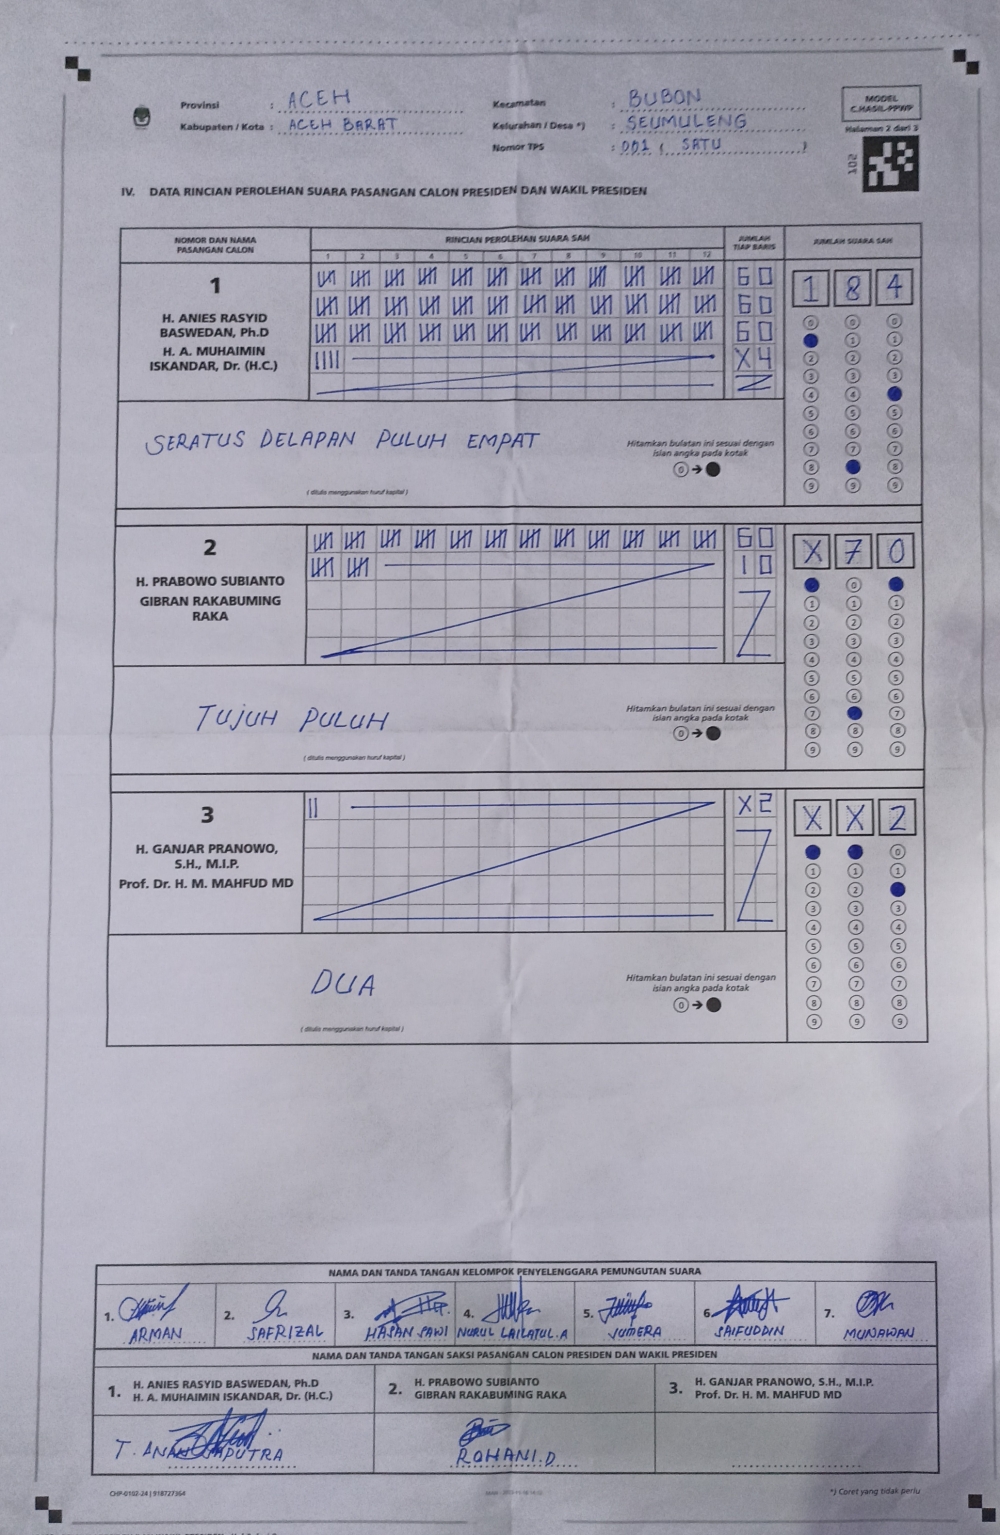 Provinsi : ACEH
Kabupaten / Kota : ACEH BARAT
Kecamatan : BUBON
Kelurahan / Desa *) : SEUMULENG
Nomor TPS : 001 ( SATU )
MODEL
C.HASIL-PPWP
Halaman 2 dari 3
102
IV. DATA RINCIAN PEROLEHAN SUARA PASANGAN CALON PRESIDEN DAN WAKIL PRESIDEN
NOMOR DAN NAMA
PASANGAN CALON
RINCIAN PEROLEHAN SUARA SAH
1 2 3 4 5 6 7 8 9 10 11 12
JUMLAH
TIAP BARIS
JUMLAH SUARA SAH
1
H. ANIES RASYID
BASWEDAN, Ph.D
H. A. MUHAIMIN
ISKANDAR, Dr. (H.C.)
60
60
60
X4
1 8 4
0 0 0
1 1
2 2 2
3 3 3
4 4
5 5 5
6 6 6
7 7 7
8 8
9 9 9
SERATUS DELAPAN PULUH EMPAT
( ditulis menggunakan huruf kapital )
Hitamkan bulatan ini sesuai dengan
isian angka pada kotak
0 →
2
H. PRABOWO SUBIANTO
GIBRAN RAKABUMING
RAKA
60
10
X 7 0
0
1 1 1
2 2 2
3 3 3
4 4 4
5 5 5
6 6 6
7 7
8 8 8
9 9 9
TUJUH PULUH
( ditulis menggunakan huruf kapital )
Hitamkan bulatan ini sesuai dengan
isian angka pada kotak
0 →
3
H. GANJAR PRANOWO,
S.H., M.I.P.
Prof. Dr. H. M. MAHFUD MD
X2
X X 2
0
1 1 1
2 2
3 3 3
4 4 4
5 5 5
6 6 6
7 7 7
8 8 8
9 9 9
DUA
( ditulis menggunakan huruf kapital )
Hitamkan bulatan ini sesuai dengan
isian angka pada kotak
0 →
NAMA DAN TANDA TANGAN KELOMPOK PENYELENGGARA PEMUNGUTAN SUARA
1. ARMAN
2. SAFRIZAL
3. HASAN SAWI
4. NURUL LAILATUL.A
5. JUMERA
6. SAIFUDDIN
7. MUNAWAN
NAMA DAN TANDA TANGAN SAKSI PASANGAN CALON PRESIDEN DAN WAKIL PRESIDEN
1. H. ANIES RASYID BASWEDAN, Ph.D
H. A. MUHAIMIN ISKANDAR, Dr. (H.C.)
2. H. PRABOWO SUBIANTO
GIBRAN RAKABUMING RAKA
3. H. GANJAR PRANOWO, S.H., M.I.P.
Prof. Dr. H. M. MAHFUD MD
T. SAPUTRA
ROHANI.D
CHP-0102-24 | 918727364
*) Coret yang tidak perlu